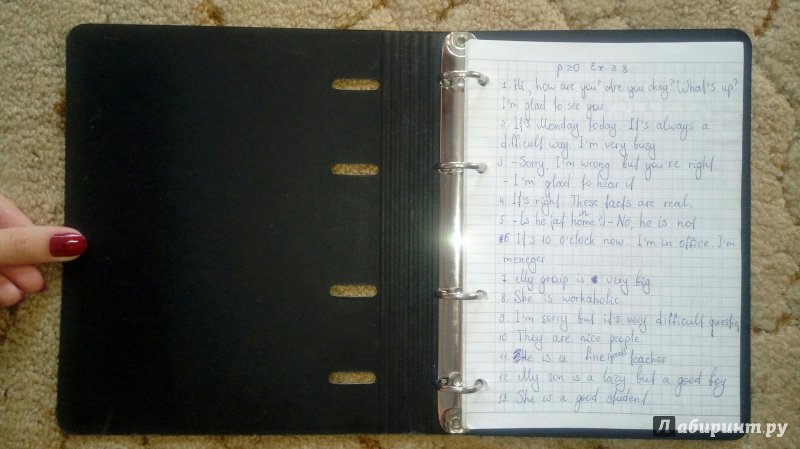 p 20 Ex 28
1. Hi, how are you? Are you okay? What's up?
I'm glad to see you
2. It's Monday today. It's always a
difficult way. I'm very busy
3. -Sorry, I'm wrong but you're right
- I'm glad to hear it
4. It's right. These facts are real.
5. - Is he (at home?) in - No, he is not
6. It's 10 o'clock now. I'm in office. I'm
meneger
7. My group is very big
8. She is workaholic
9. I'm sorry but it's very difficult question
10. They are nice people.
11. He is a fine teacher
12. My son is a lazy, but a good boy
13. She is a good student
Лабиринт.ру